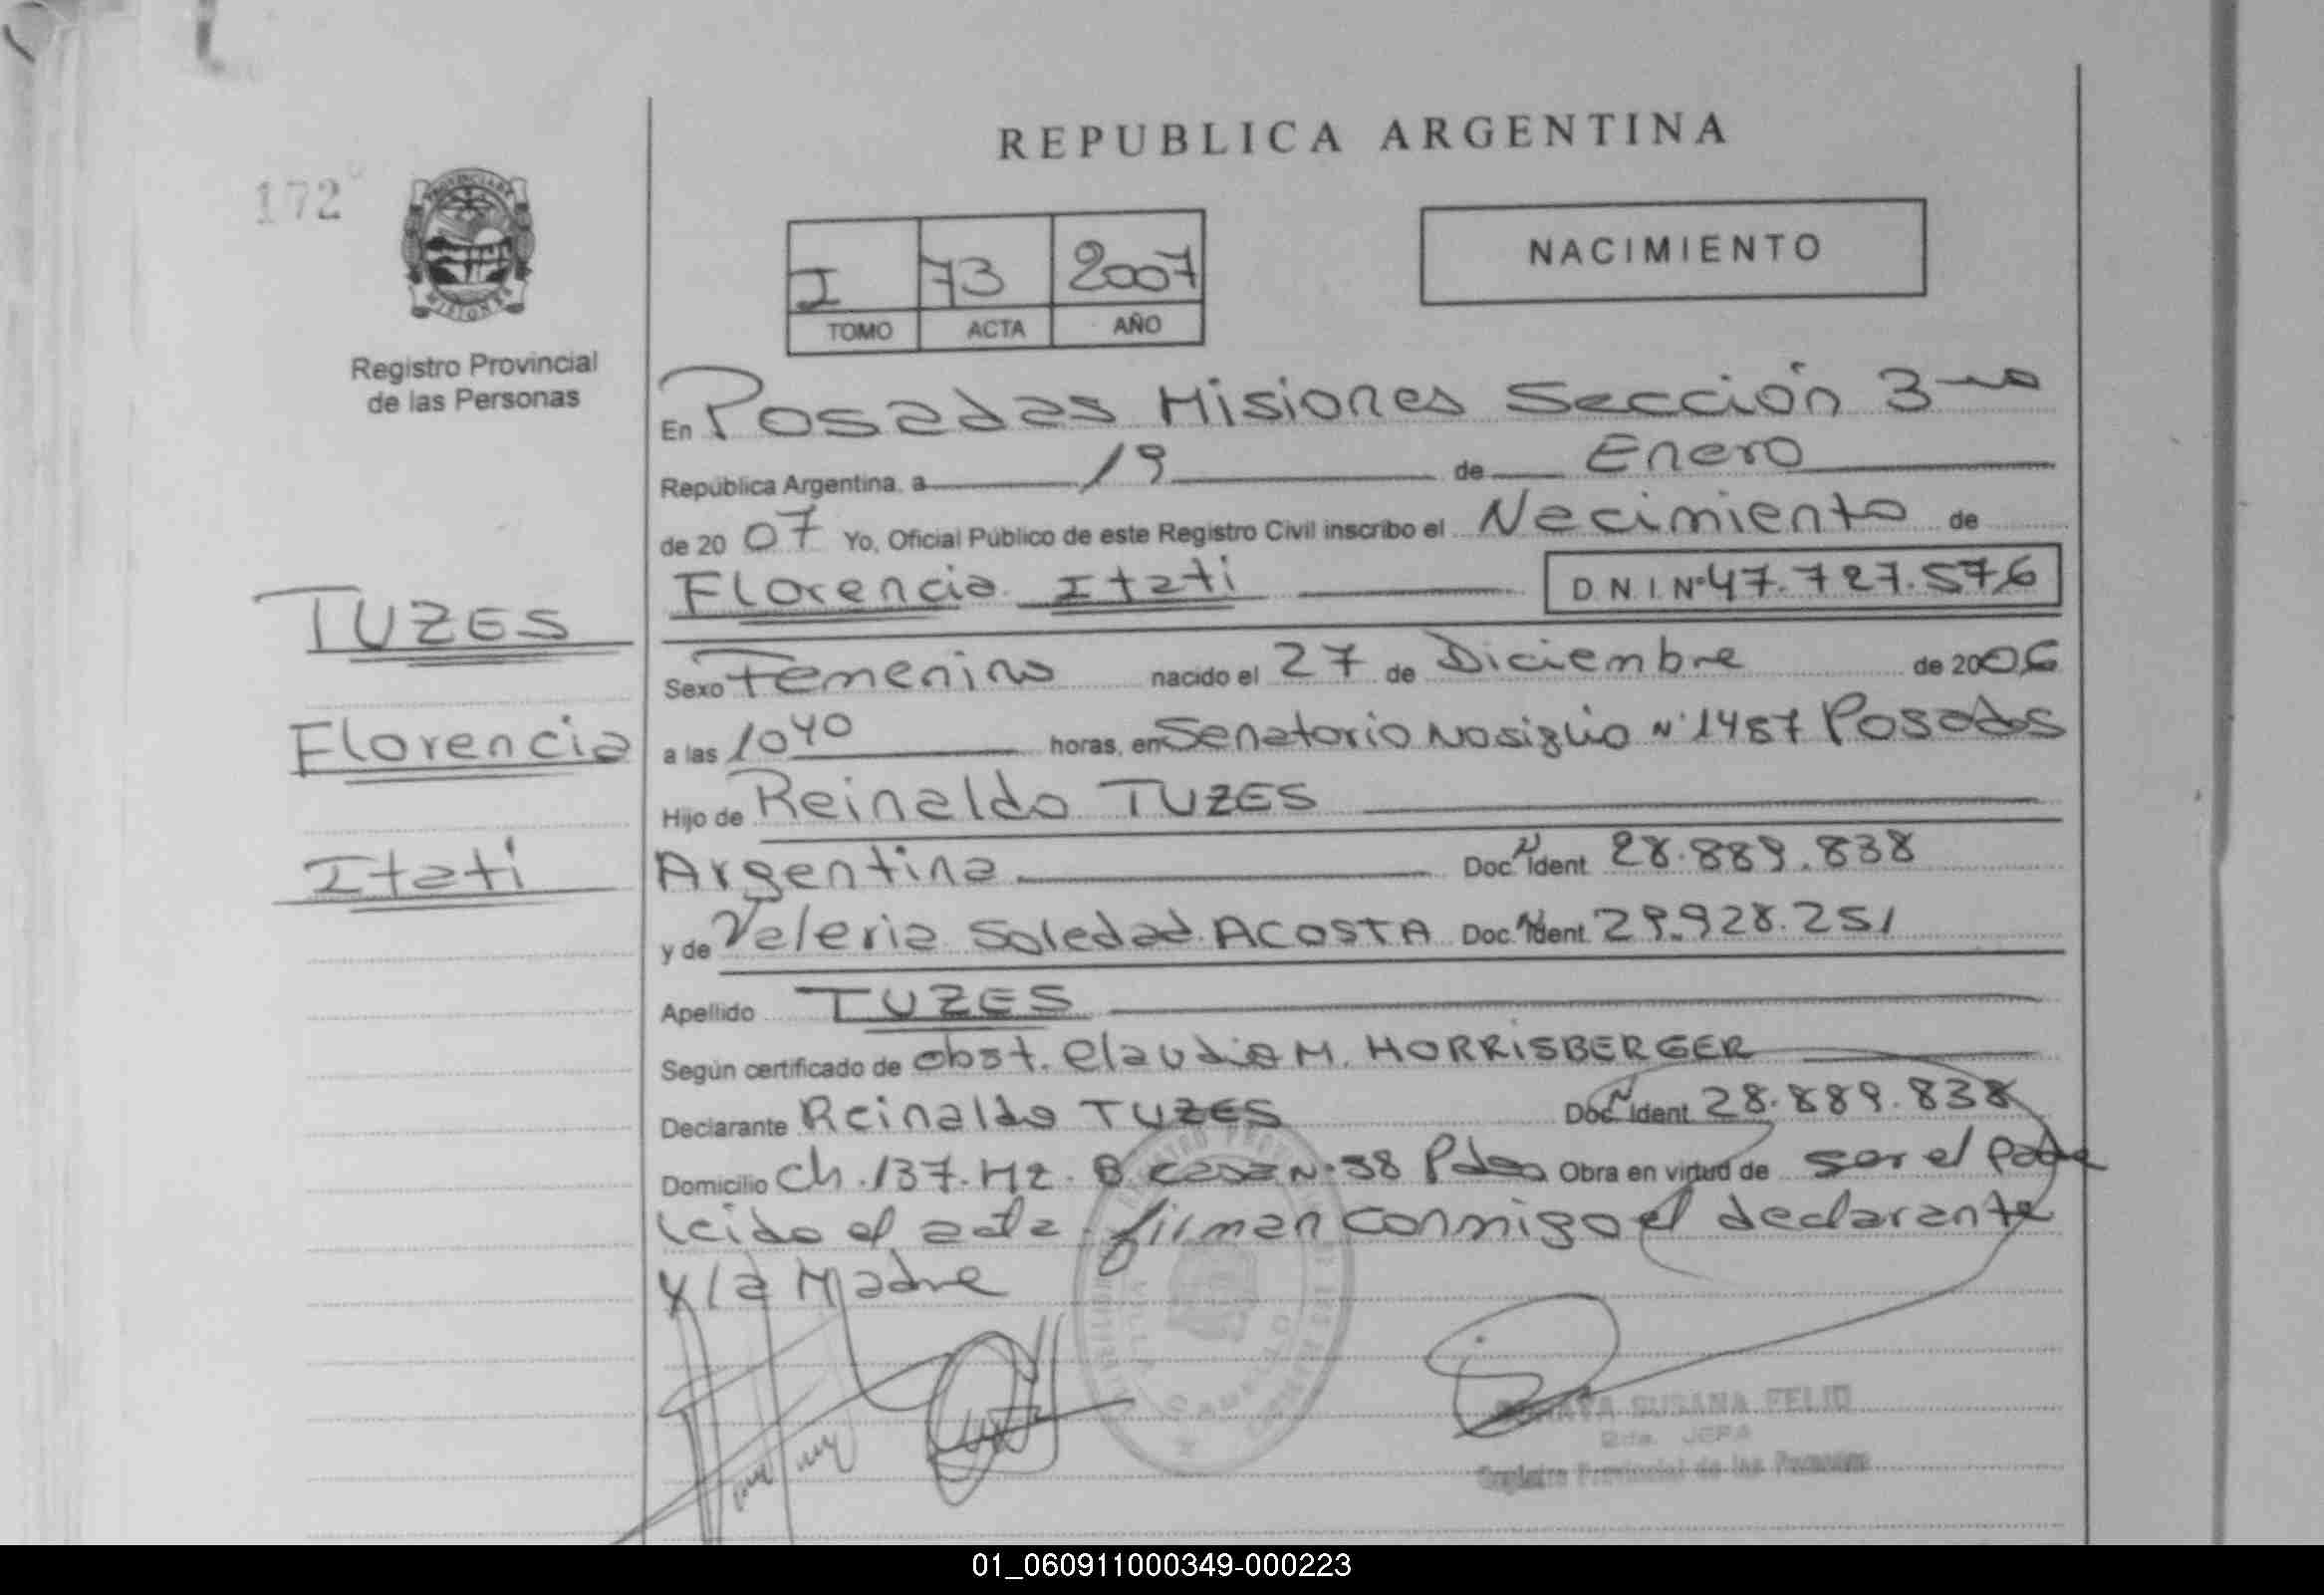 REPUBLICA ARGENTINA
172
I 73 2007
TOMO ACTA AÑO
NACIMIENTO
PROVINCIA DE
MISIONES
Registro Provincial
de las Personas
En Posadas Misiones Sección 3
República Argentina, a 19 de Enero
de 20 07 Yo, Oficial Público de este Registro Civil inscribo el Nacimiento de
Florencia Itati D.N.I. Nº 47.727.576
TUZES
Florencia
Itati
Sexo Femenino nacido el 27 de Diciembre de 2006
a las 1040 horas, en Sanatorio Nosiglio Nº 1487 Posadas
Hijo de Reinaldo TUZES
Argentina Doc. Ident. 28.889.838
y de Valeria Soledad ACOSTA Doc. Ident. 29.928.251
Apellido TUZES
Según certificado de obst. Claudia M. HORRISBERGER
Declarante Reinaldo TUZES Doc. Ident. 28.889.838
Domicilio Ch. 137. Mz. B casa Nº 38 Pdas Obra en virtud de ser el Padre
leido el acta firman conmigo el declarante
y la Madre
SUSANA FELIU
2da. JEFA
Registro Provincial de las Personas
01_060911000349-000223